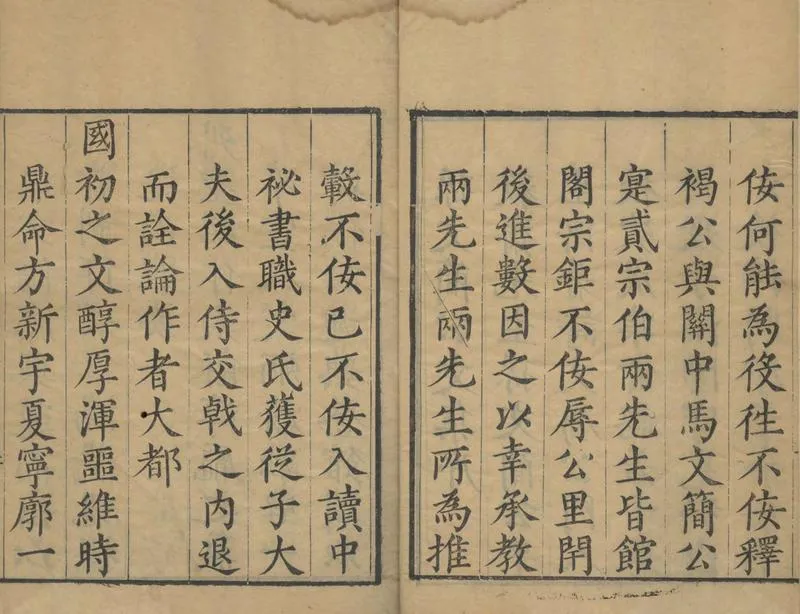 佞何能為役徃不佞釋
褐公與關中馬文簡公
寔貳宗伯兩先生皆館
閣宗鉅不佞辱公里閈
後進數因之以幸承教
兩先生兩先生所為推
轂不佞已不佞入讀中
祕書職史氏獲從子大
夫後入侍交戟之内退
而詮論作者大都
國初之文醇厚渾噩維時
鼎命方新宇夏寧廓一